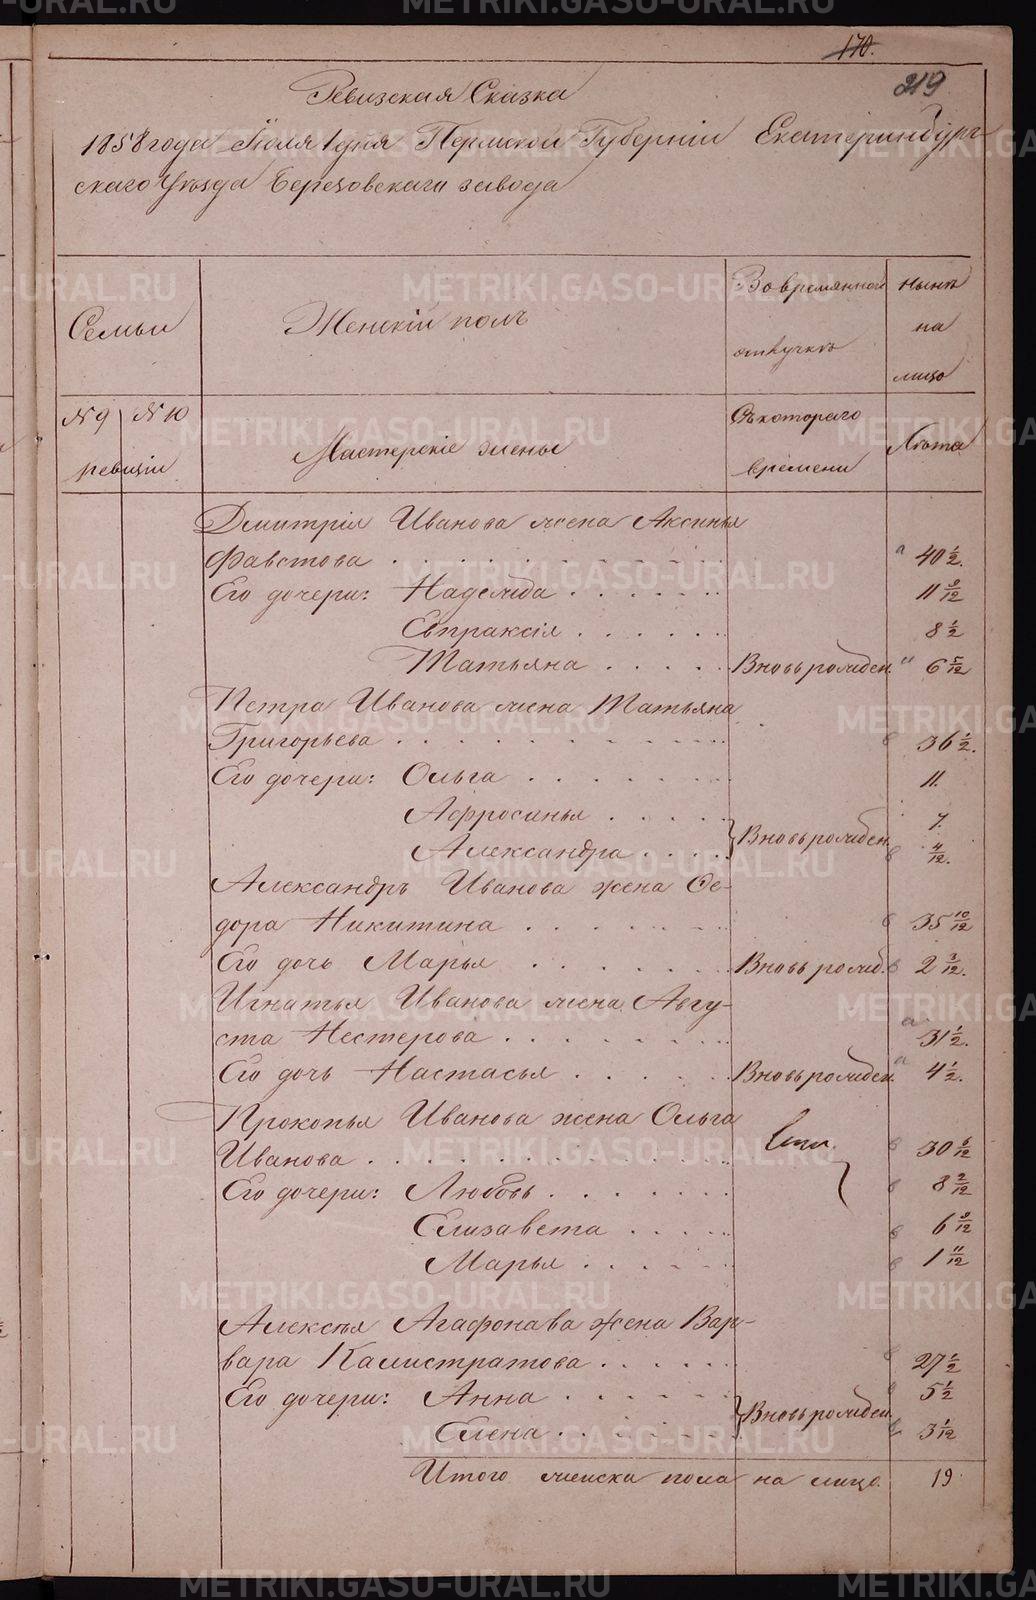 170.
219
Ревизская Сказка
1858 года Іюля 1 дня Пермской Губерніи Екатеринбург-
скаго Уѣзда Березовскаго завода
Семьи
Женскій полъ
Во временной
отлучкѣ
нынѣ
на
лицо
№ 9 № 10
ревизіи
Мастерскіе жены
Съ котораго
времени
Лѣта
Дмитрія Иванова жена Аксинья
Фавстова 40 1/2.
Его дочери: Надежда 11 9/12
Евпраксія 8 1/2
Татьяна Вновь рожден. 6 5/12
Петра Иванова жена Татьяна
Григорьева 36 1/2.
Его дочери: Ольга 11.
Афросинья 7.
Александра Вновь рожден. 4/12.
Александръ Иванова жена Ѳе-
дора Никитина 35 10/12
Его дочь Марья Вновь рожд. 2 3/12.
Игнатья Иванова жена Авгу-
ста Нестерова 31 1/2.
Его дочь Настасья Вновь рожден. 4 1/2.
Прокопья Иванова жена Ольга
Иванова 30 6/12
Его дочери: Любовь 8 2/12
Елизавета 6 9/12
Марья 1 11/12
Алексѣя Агафонава жена Вар-
вара Калистратова 27 1/2
Его дочери: Анна 5 1/2
Елена Вновь рожден. 3 1/12
Итого женска пола на лицо. 19
METRIKI.GASO-URAL.RU